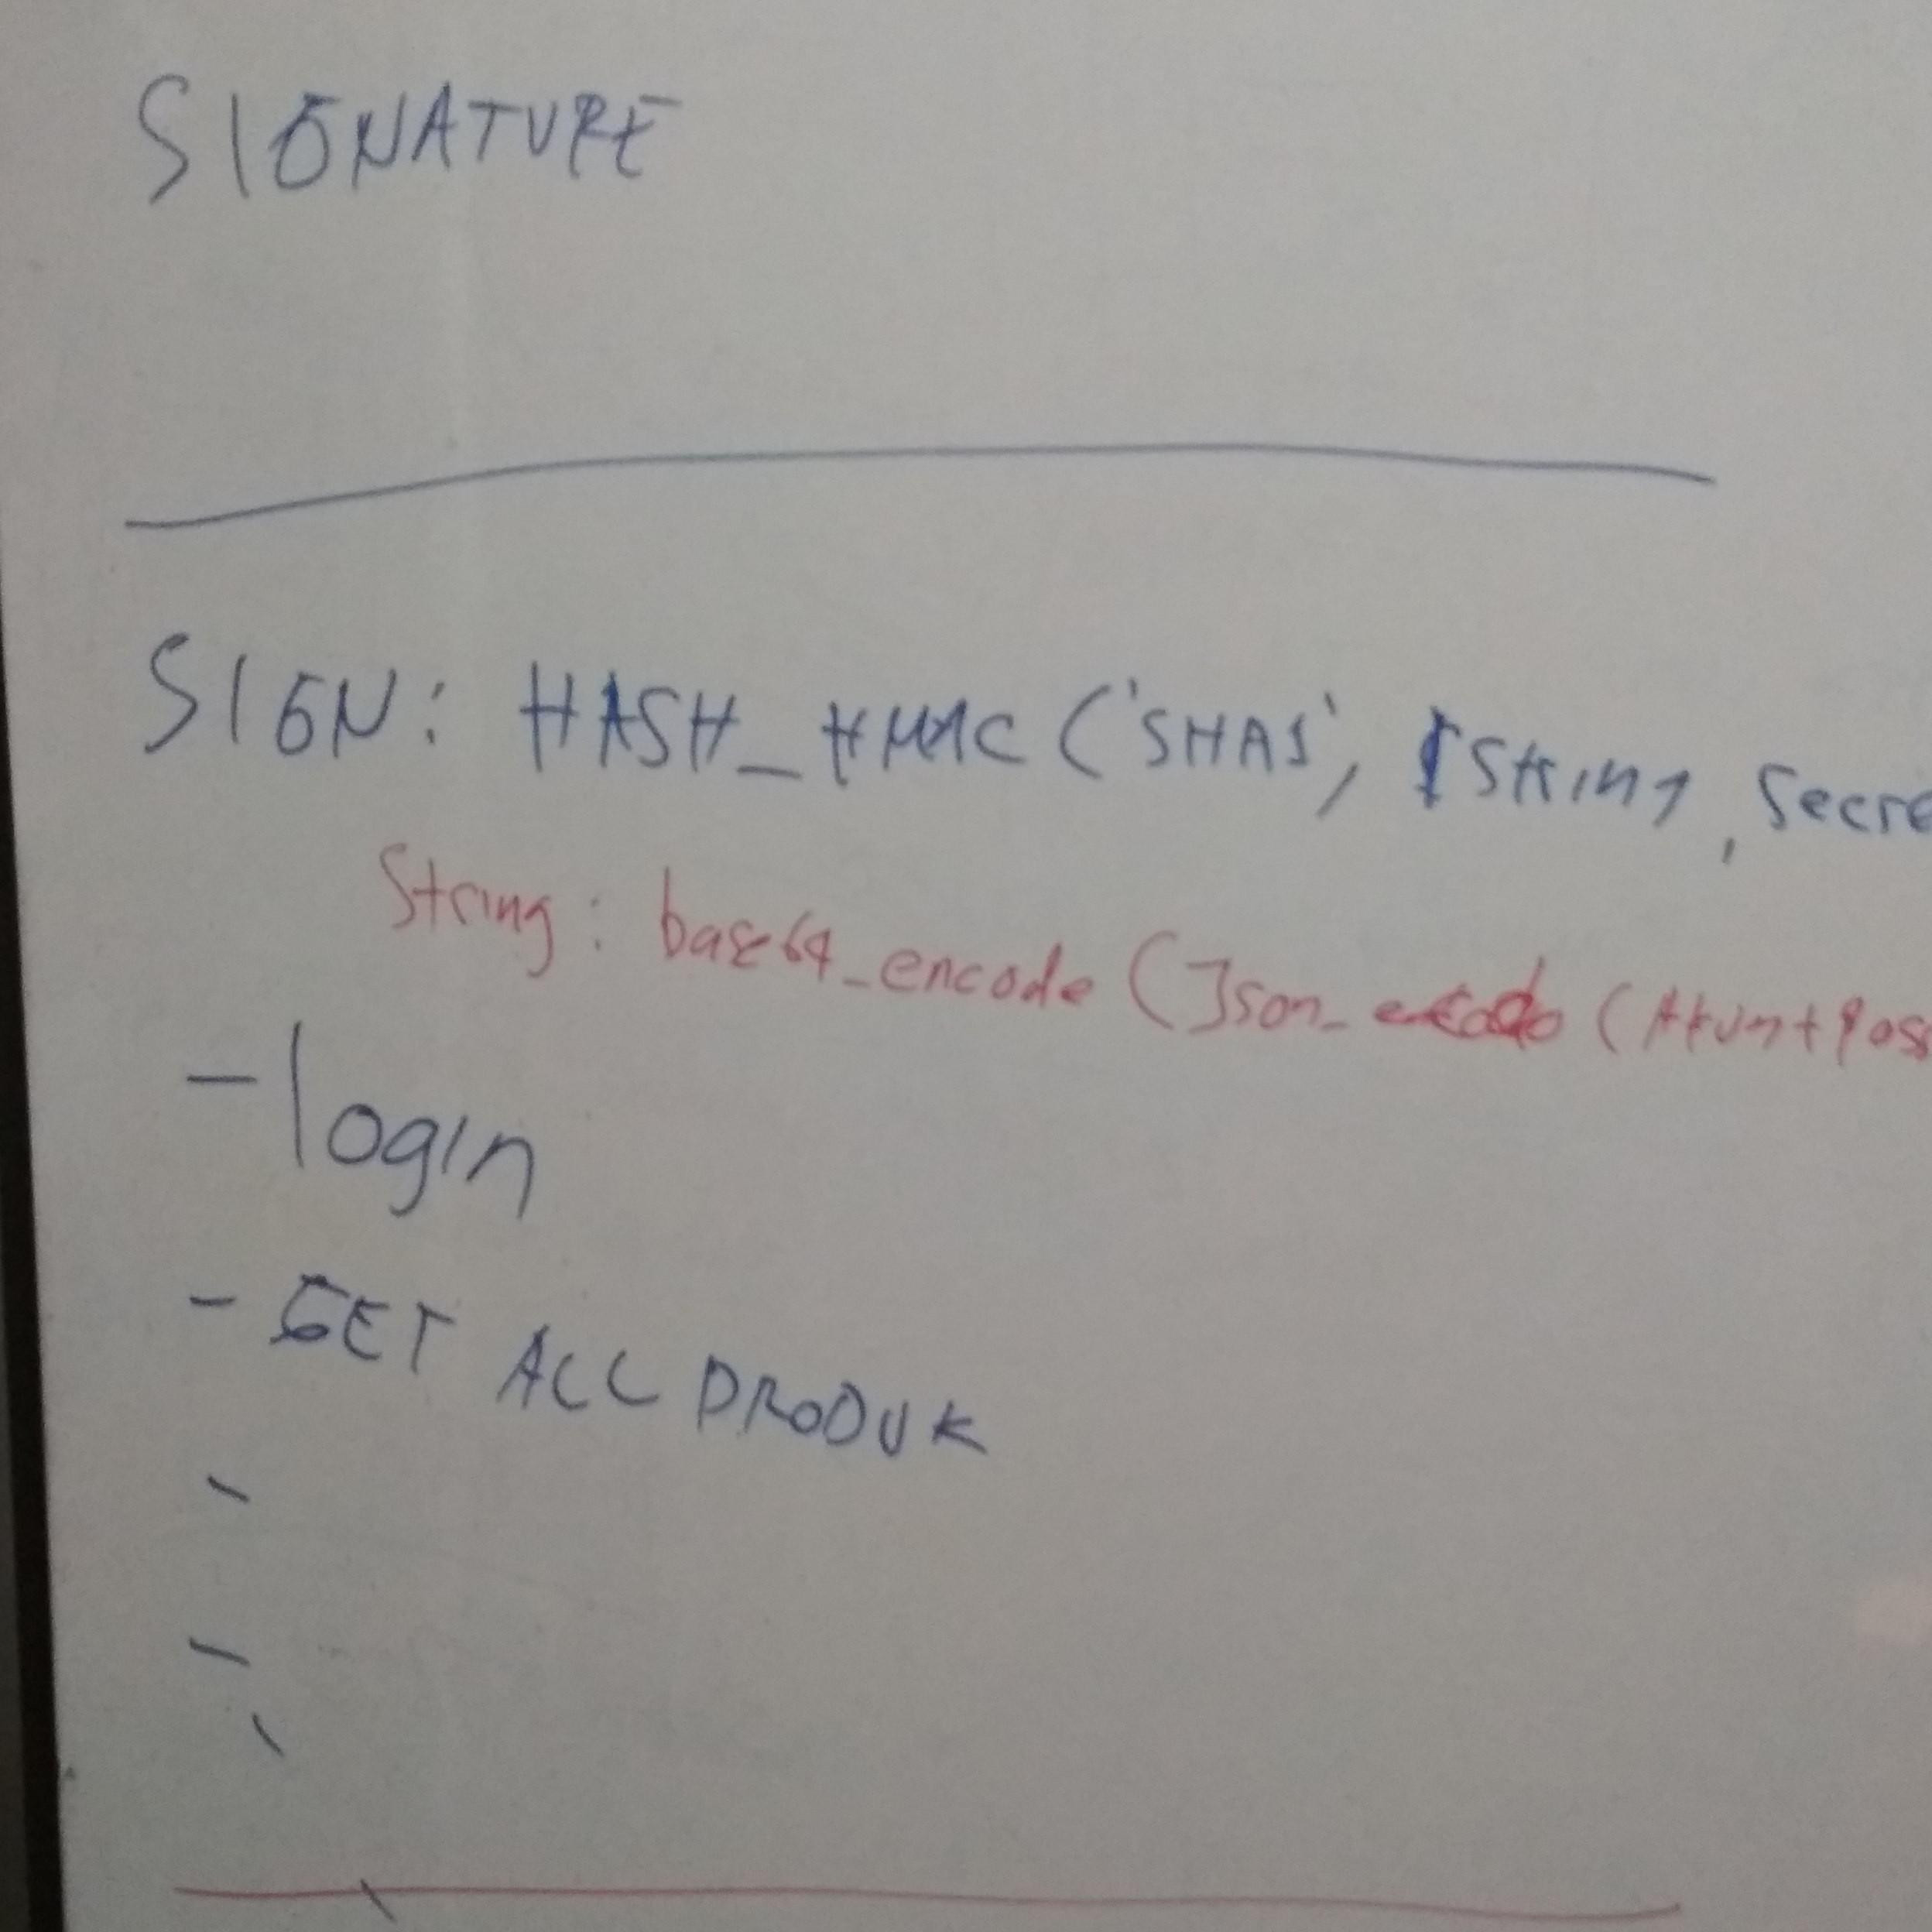 SIGNATURE
SIGN: HASH_HMAC ('SHA1', $String, Secre
String: base64_encode (Json_encode (
- login
- GET ALL PRODUK
-
-